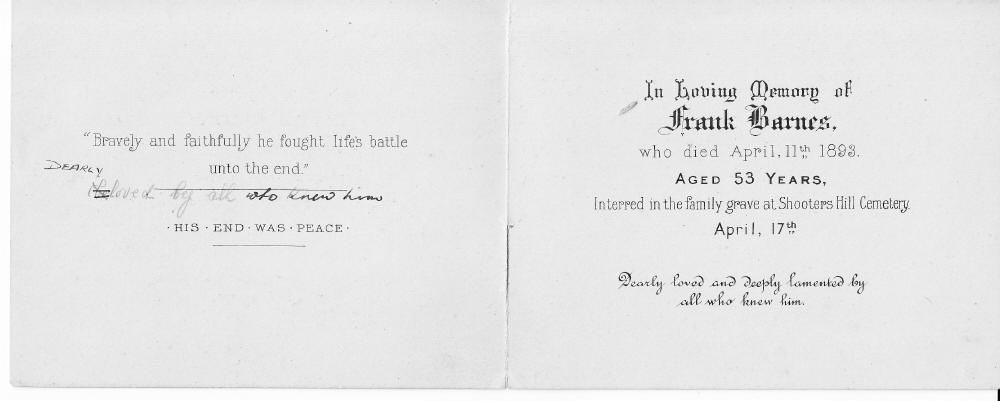 "Bravely and faithfully he fought life's battle
unto the end."
DEARLY
Beloved by all who knew him
· HIS · END · WAS · PEACE ·
In Loving Memory of
Frank Barnes,
who died April, 11th 1893.
AGED 53 YEARS,
Interred in the family grave at Shooters Hill Cemetery,
April, 17th
Dearly loved and deeply lamented by
all who knew him.